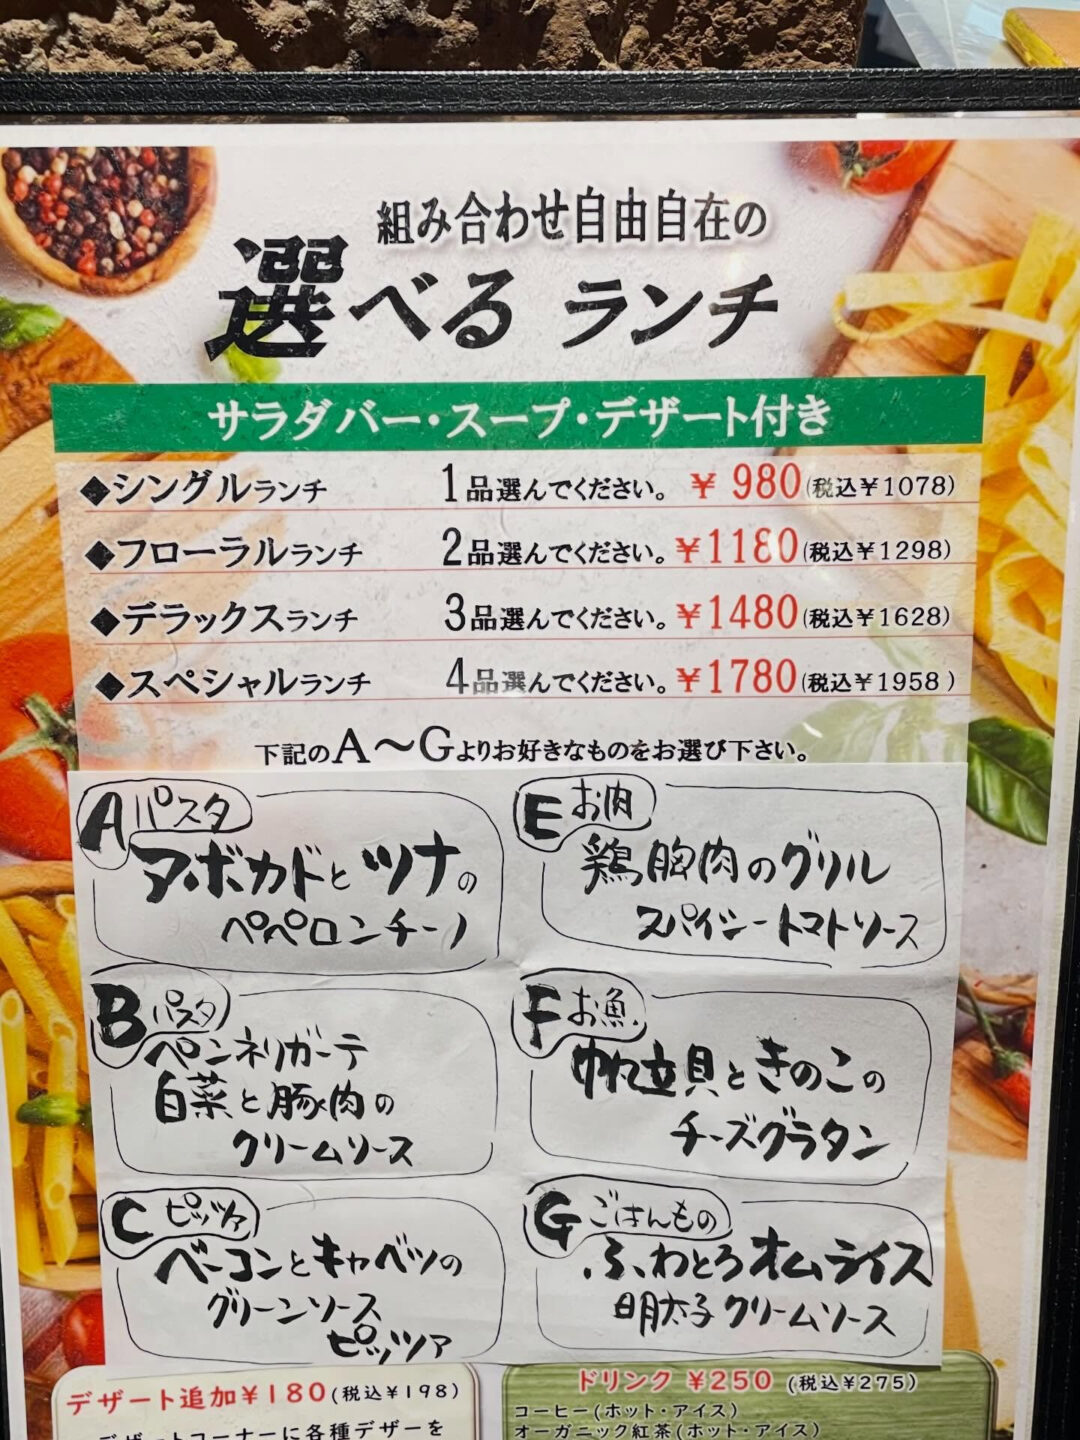 組み合わせ自由自在の
選べる ランチ
サラダバー・スープ・デザート付き
◆シングルランチ 1品選んでください。 ¥ 980(税込¥1078)
◆フローラルランチ 2品選んでください。 ¥1180(税込¥1298)
◆デラックスランチ 3品選んでください。 ¥1480(税込¥1628)
◆スペシャルランチ 4品選んでください。 ¥1780(税込¥1958)
下記のA〜Gよりお好きなものをお選び下さい。
A パスタ
アボカドとツナの
ペペロンチーノ
B パスタ
ペンネリガーテ
白菜と豚肉の
クリームソース
C ピッツァ
ベーコンとキャベツの
グリーンソース
ピッツァ
E お肉
鶏胸肉のグリル
スパイシートマトソース
F お魚
帆立貝ときのこの
チーズグラタン
G ごはんもの
ふわとろオムライス
明太子クリームソース
デザート追加¥180(税込¥198)
デザートコーナーに各種デザーを
ドリンク ¥250 (税込¥275)
コーヒー(ホット・アイス)
オーガニック紅茶(ホット・アイス)